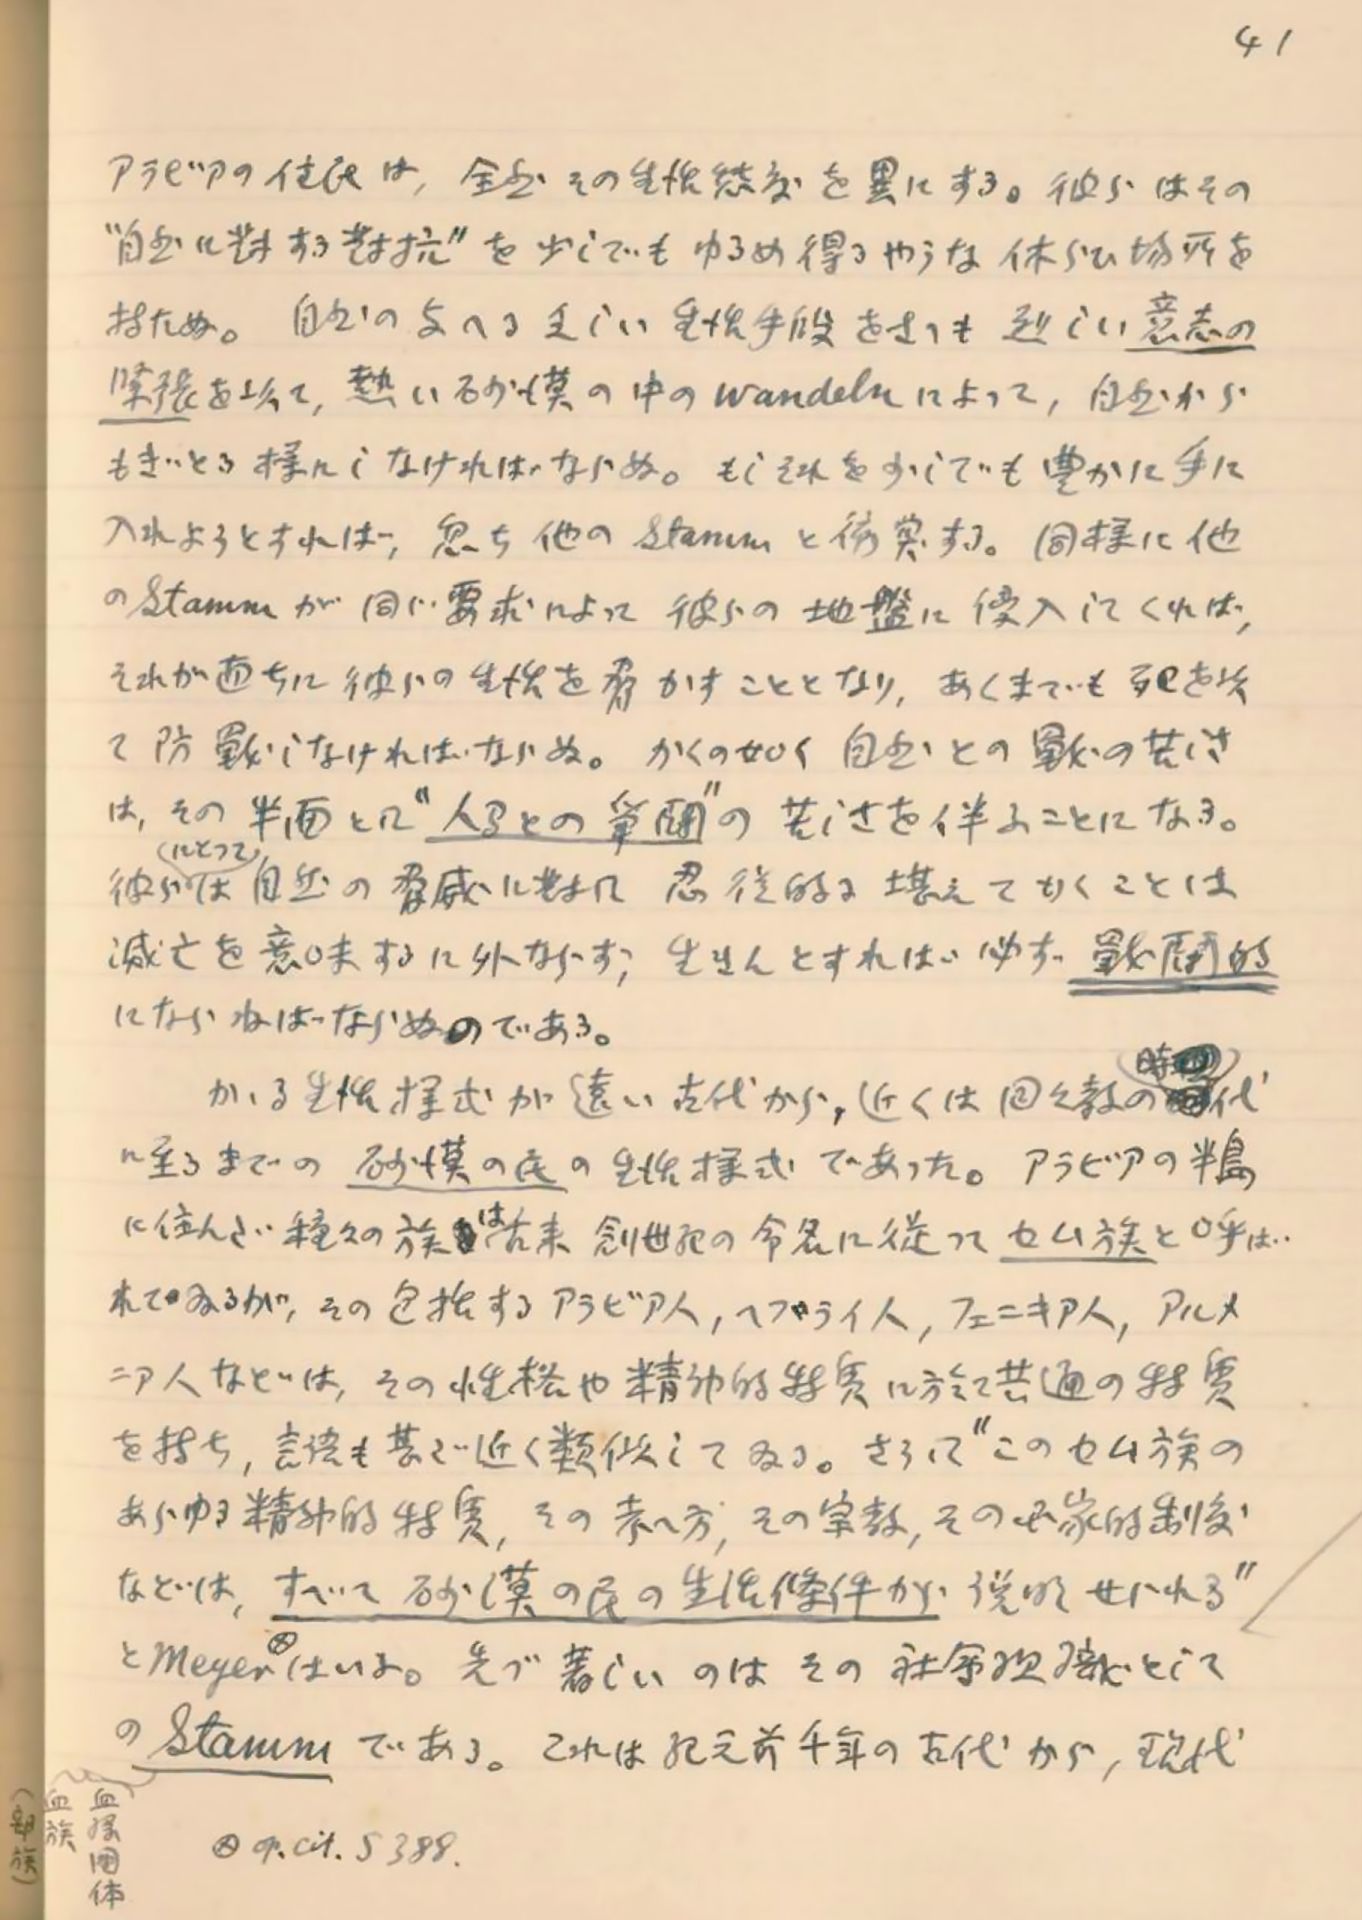 41
アラビアの住民は, 全然その生活態度を異にする。彼らはその
"自然に対する対抗"を少しでもゆるめ得るやうな休らひ場所を
持たぬ。 自然の与へる乏しい生活手段をさへも烈しい意志の
緊張を以て, 熱い砂漠の中の wandeln によって, 自然から
もぎとる様にしなければならぬ。もしそれを少しでも豊かに手に
入れようとすれば, 忽ち他の Stamm と衝突する。同様に他
の Stamm が同じ要求によって彼らの地盤に侵入してくれば,
それが直ちに彼らの生活を脅かすこととなり, あくまでも死を以
て防戦しなければならぬ。かくの如く自然との戦の苦しさ
は, その半面として"人間との争闘"の苦しさを伴ふことになる。
彼ら(にとって)は自然の脅威に対して忍従的に堪えてゆくことは
滅亡を意味するに外ならず, 生きんとすれば必ず戦闘的
にならねばならぬのである。
かゝる生活様式が遠い古代から, 近くは回々教の時代
に至るまでの砂漠の民の生活様式であった。アラビアの半島
に住んだ種々の族は古来創世記の命名に従ってセム族と呼ば
れてゐるが, その包括するアラビア人, ヘブライ人, フェニキア人, アルメ
ニア人などは, その性格や精神的特質に於て共通の特質
を持ち, 言語も甚だ近く類似してゐる。さうして"このセム族の
あらゆる精神的特質, その考へ方, その宗教, その国家的制度
などは, すべて砂漠の民の生活條件から説明せられる"
と Meyer⊗はいふ。先づ著しいのはその社会的現象として
の Stamm である。これは紀元前千年の古代から, 現代
血縁団体
血族
(部族)
⊗ op. cit. S 388.